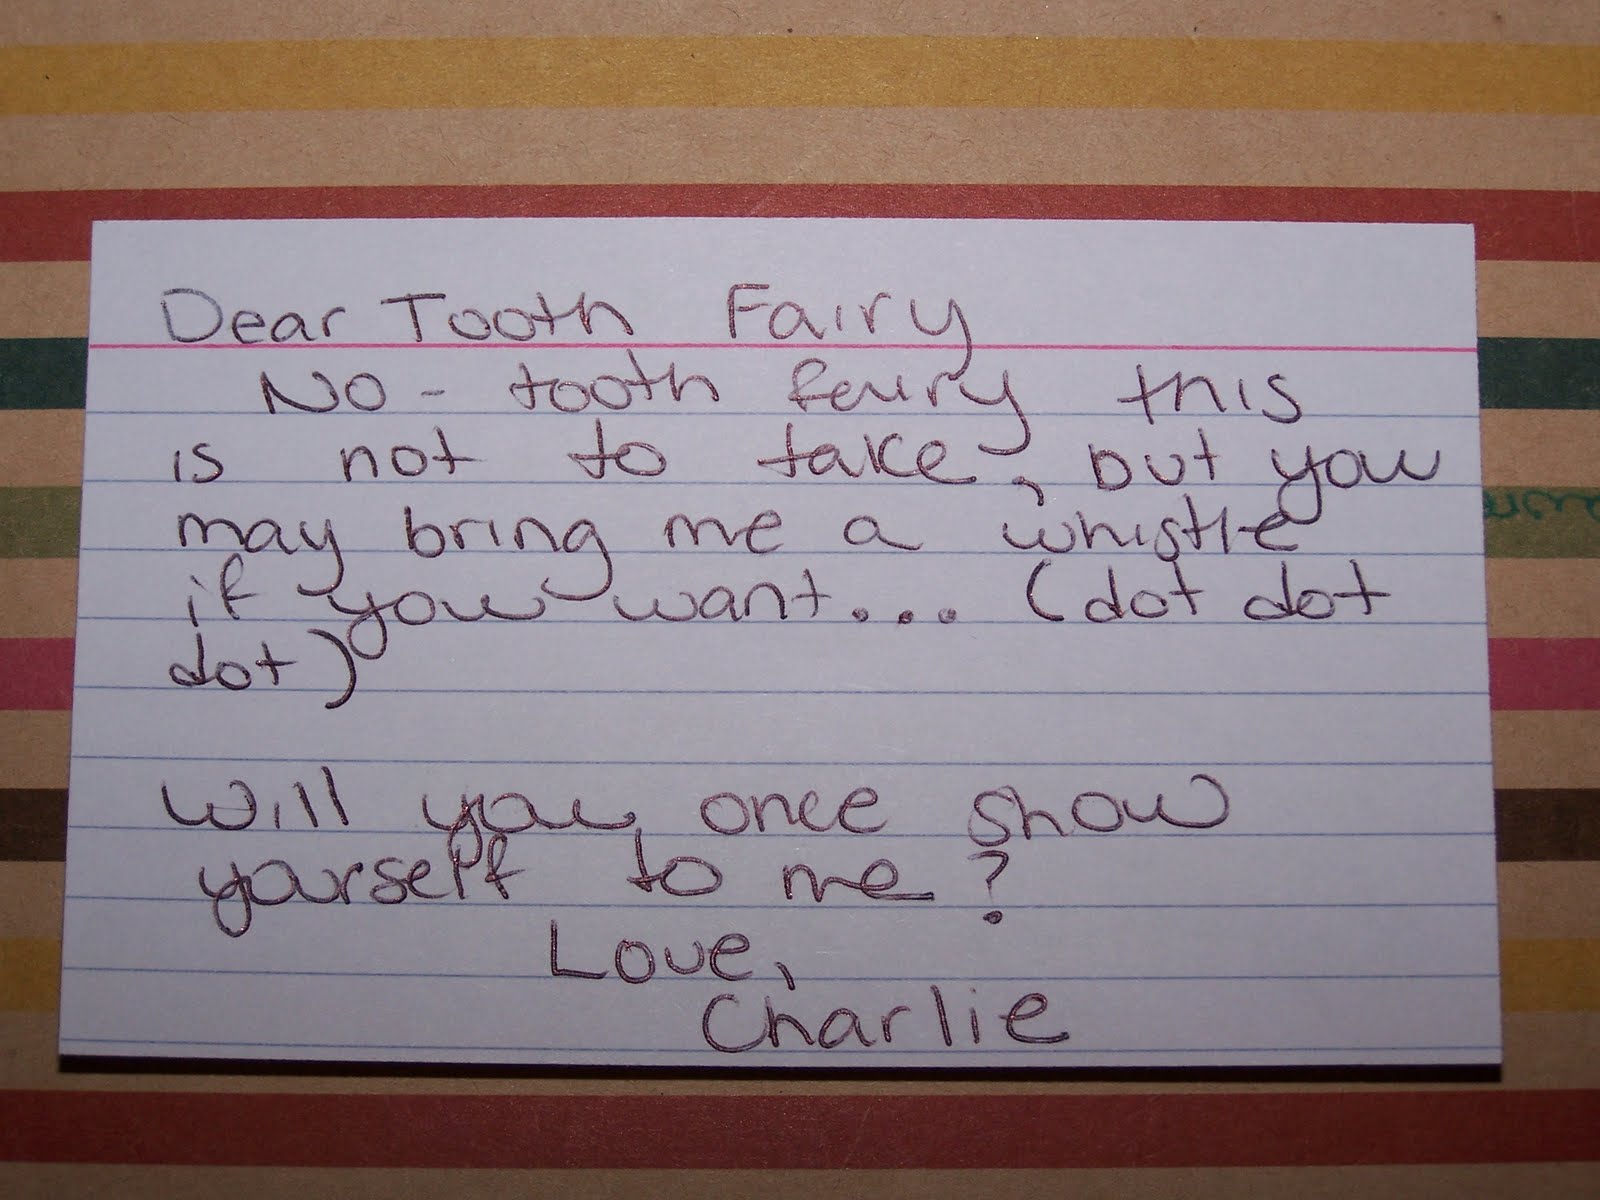 Dear Tooth Fairy
No - tooth fairy this
is not to take, but you
may bring me a whistle
if you want... (dot dot
dot)
Will you once show
yourself to me?
Love,
Charlie